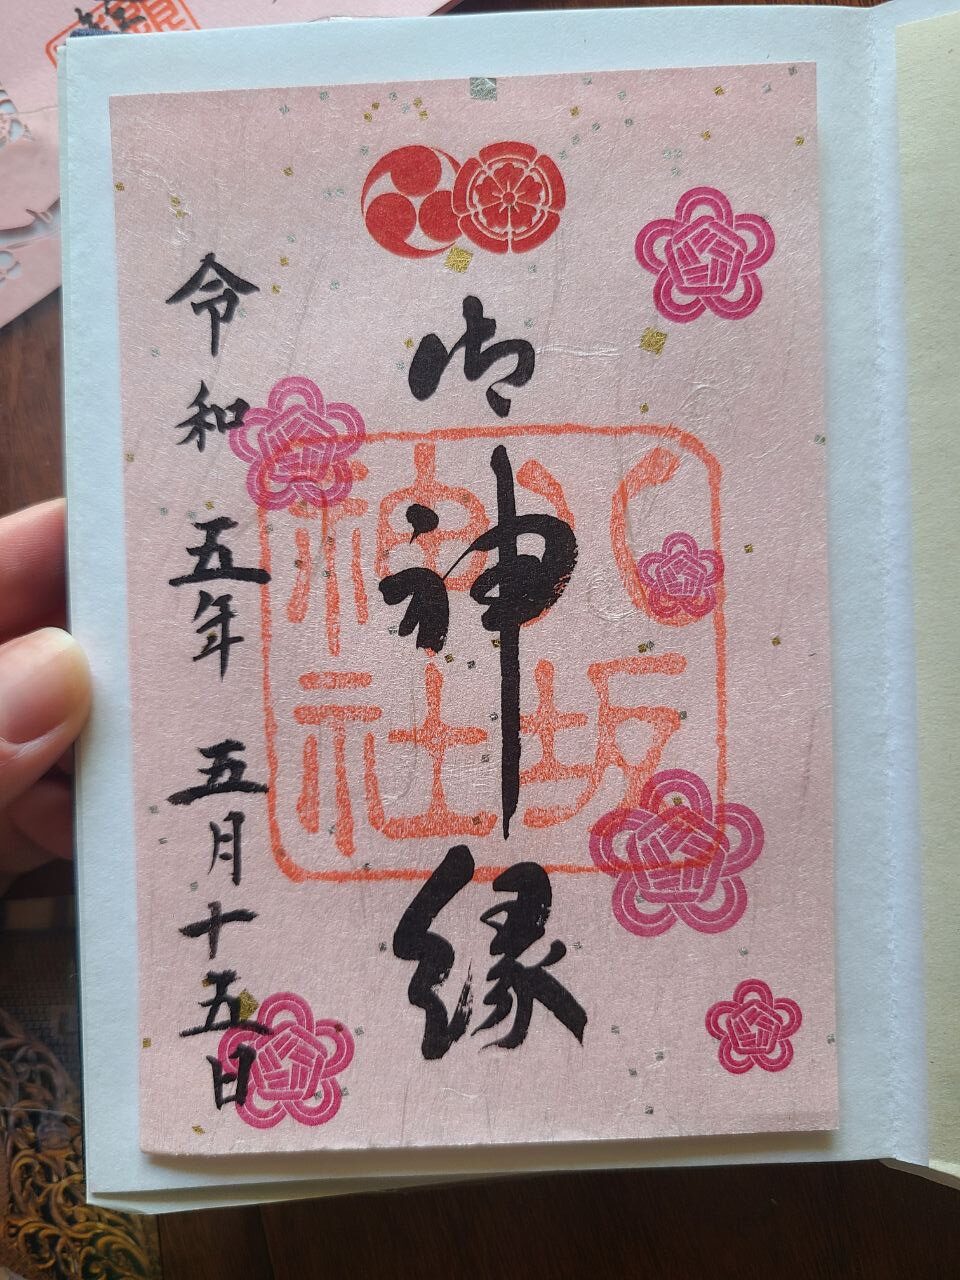 御神縁
八坂神社
令和五年五月十五日